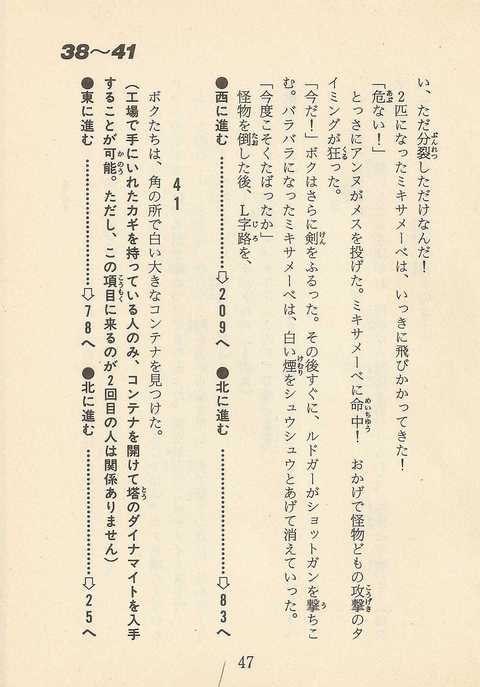 38～41
い、ただ分裂しただけなんだ！
2匹になったミキサメーペは、いっきに飛びかかってきた！
「危ない！」
とっさにアンヌがメスを投げた。ミキサメーペに命中！　おかげで怪物どもの攻撃のタ
イミングが狂った。
「今だ！」ボクはさらに剣をふるった。その後すぐに、ルドガーがショットガンを撃ちこ
む。バラバラになったミキサメーペは、白い煙をシュウシュウとあげて消えていった。
「今度こそくたばったか」
怪物を倒した後、L字路を、
●西に進む…………⇨209へ　●北に進む…………⇨83へ
41
ボクたちは、角の所で白い大きなコンテナを見つけた。
（工場で手にいれたカギを持っている人のみ、コンテナを開けて塔のダイナマイトを入手
することが可能。ただし、この項目に来るのが2回目の人は関係ありません）
●東に進む…………⇨78へ　●北に進む…………⇨25へ
47